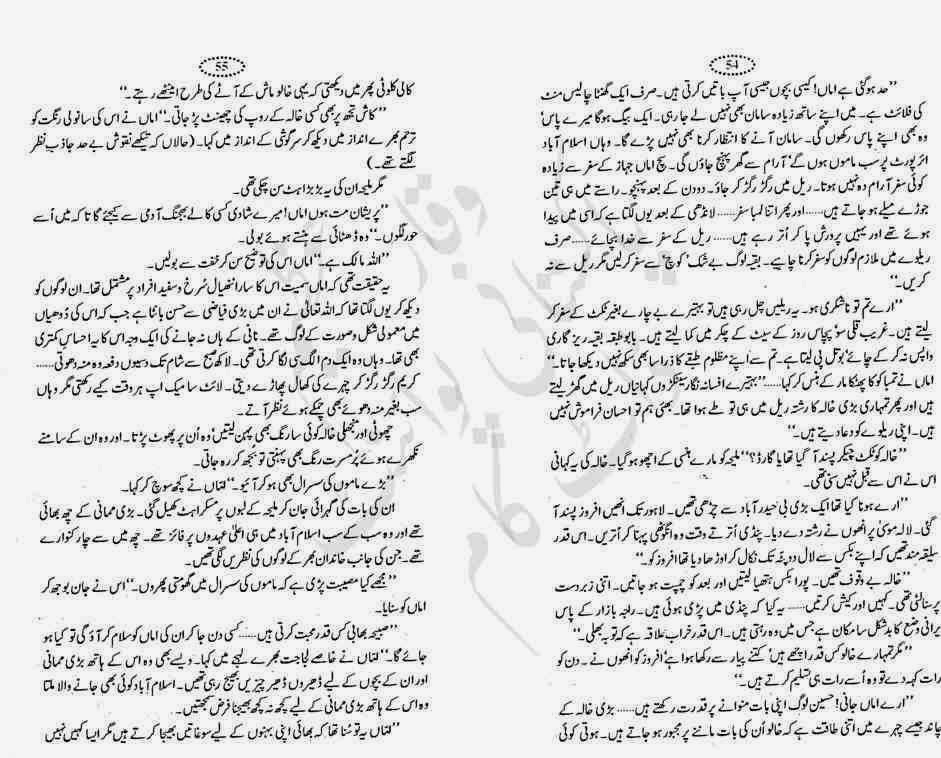 54
”حد ہو گئی ہے اماں! کیسی بچوں جیسی آپ باتیں کرتی ہیں۔ صرف ایک گھنٹا چالیس منٹ
کی فلائٹ ہے۔ میں اپنے ساتھ زیادہ سامان بھی نہیں لے جا رہی۔ ایک بیگ ہوگا میرے پاس‘
وہ بھی اپنے پاس رکھوں گی۔ سامان آنے کا انتظار کرنا بھی نہیں پڑے گا۔ وہاں اسلام آباد
ائرپورٹ پر سب ماموں ہوں گے‘ آرام سے گھر پہنچ جاؤں گی۔ سچ اماں جہاز کے سفر سے زیادہ
کوئی سفر آرام دہ نہیں ہوتا۔ ریل میں رگڑ رگڑ کر جاؤ۔ دو دن کے بعد پہنچو۔ راستے میں ہی تین
جوڑے میلے ہو جاتے ہیں...... اور پھر اتنا لمبا سفر...... لانڈھی کے بعد یوں لگتا ہے کہ اسی میں پیدا
ہوئے تھے اور یہیں پرورش پا کر اُتر رہے ہیں...... ریل کے سفر سے خدا بچائے...... صرف
ریلوے میں ملازم لوگوں کو سفر کرنا چاہیے۔ بقیہ لوگ بے شک ’کوچ‘ سے سفر کر لیں مگر ریل سے نہ
کریں۔“
”ارے تم تو ناشکری ہو۔ یہ ریلیں چل رہی ہیں تو بہتیرے بے چارے بغیر ٹکٹ کے سفر کر
لیتے ہیں۔ غریب قلی سو‘ پچاس روز کے سیٹ کے چکر میں کما لیتے ہیں۔ بابو طبقہ بقیہ ریزگاری
واپس نہ کر کے چائے‘ بوتل پی لیتا ہے۔ تم سے اپنے مظلوم طبقے کا ذرا سا بھی سکھ نہیں دیکھا جاتا۔“
اماں نے تمباکو کا پھنکا مار کے ہنس کر کہا...... ”بہتیرے افسانہ نگار سینکڑوں کہانیاں ریل میں گھڑ لیتے
ہیں اور پھر تمہاری بڑی خالہ کا رشتہ ریل میں ہی تو طے ہوا تھا۔ بھئی ہم تو احسان فراموش نہیں
ہیں۔ اپنی ریلوے کو دعا دیتے ہیں۔“
”خالہ کو ٹکٹ چیکر پسند آ گیا تھا یا گارڈ؟“ ملیحہ کو مارے ہنسی کے اچھو ہو گیا۔ خالہ کی یہ کہانی
اس نے اس سے قبل نہیں سنی تھی۔
”ارے ہونا کیا تھا ایک بڑی بی حیدر آباد سے چڑھی تھیں۔ لاہور تک انھیں افروز پسند آ
گئی۔ لالہ موسیٰ پر انھوں نے رشتہ دے دیا۔ پنڈی اُترتے وقت وہ انگوٹھی پہنا کر اُتریں۔ اس قدر
سلیقہ مند تھیں کہ اپنے بکس سے لال دوپٹہ تک نکال کر اوڑھا دیا تھا افروز کو۔“
”خالہ بے وقوف تھیں۔ پورا بکس ہتھیا لیتیں اور بعد کو چمپت ہو جاتیں۔ اتنی زبردست
پرسنالٹی تھی۔ کہیں اور کیش کرتیں...... یہ کیا کہ پنڈی میں پڑی ہوئی ہیں۔ راجہ بازار کے پاس
پرانی وضع کا بدشکل سا مکان ہے جس میں وہ رہتی ہیں۔ اس قدر خراب علاقہ ہے کہ توبہ بھلی۔“
”مگر تمہارے خالو کس قدر اچھے ہیں‘ کتنے پیار سے رکھا ہوا ہے‘ افروز کو انھوں نے۔ دن کو
رات کہہ دے تو وہ اُسے رات ہی تسلیم کرتے ہیں۔“
”ارے اماں جانی! حسین لوگ اپنی بات منوانے پر قدرت رکھتے ہیں...... بڑی خالہ کے
چاند جیسے چہرے میں اتنی طاقت ہے کہ خالو اُن کی بات ماننے پر مجبور ہو جاتے ہیں۔ ہوتی کوئی
55
کالی کلوٹی پھر میں دیکھتی کہ یہی خالو ماش کے آٹے کی طرح اینٹھے رہتے۔“
”کاش تجھ پر بھی کسی خالہ کے روپ کی چھینٹ پڑ جاتی۔“ اماں نے اس کی سانولی رنگت کو
ترحم بھرے انداز میں دیکھ کر سرگوشی کے انداز میں کہا۔ (حالاں کہ تیکھے نقوش بے حد جاذب نظر
لگتے تھے۔)
مگر ملیحہ ان کی یہ بڑبڑاہٹ سن چکی تھی۔
”پریشان مت ہوں اماں! میرے شادی کسی کالے بھجنگ آدمی سے کیجئے گا تا کہ میں اُسے
حور لگوں۔“ وہ ڈھٹائی سے ہنستے ہوئے بولی۔
”اللہ مالک ہے۔“ اماں اس کی توضیح سن کر خفت سے بولیں۔
یہ حقیقت تھی کہ اماں سمیت اس کا سارا ننھیال سُرخ و سفید افراد پر مشتمل تھا۔ ان لوگوں کو
دیکھ کر یوں لگتا تھا کہ اللہ تعالیٰ نے ان میں بڑی فیاضی سے حسن بانٹا ہے جب کہ اس کی ددھیال
میں معمولی شکل و صورت کے لوگ تھے۔ نانی کے ہاں نہ جانے کی ایک وجہ اس کا یہ احساسِ کمتری
بھی تھا۔ وہاں وہ ایک دم الگ ہی لگا کرتی تھی۔ لاکھ صبح سے شام تک دسیوں دفعہ وہ منہ دھوتی......
کریم رگڑ رگڑ کر چہرے کی کھال پھاڑے دیتی۔ لائٹ سا میک اپ ہر وقت کیے رکھتی مگر وہاں
سب بغیر منہ دھوئے بھی چمکے ہوئے نظر آتے۔
چھوٹی اور منجھلی خالہ کوئی سا رنگ بھی پہن لیتیں‘ وہ اُن پر پھوٹ پڑتا۔ اور وہ ان کے سامنے
نکھرے ہوئے پُر مسرت رنگ بھی پہنتی تو بجھ کر رہ جاتی۔
”بڑے ماموں کی سسرال بھی ہو کر آئیو۔“ اماں نے کچھ سوچ کر کہا۔
اُن کی بات کی گہرائی جان کر ملیحہ کے لبوں پر مسکراہٹ کھیل گئی۔ بڑی ممانی کے چھ بھائی
تھے اور وہ سب کے سب اسلام آباد میں ہی اعلیٰ عہدوں پر فائز تھے۔ چھ میں سے چار کنوارے
تھے۔ جن کی جانب خاندان بھر کے لوگوں کی نظریں لگی تھیں۔
”مجھے کیا مصیبت پڑی ہے کہ ماموں کی سسرال میں گھومتی پھروں۔“ اس نے جان بوجھ کر
اماں کو ستایا۔
”صبیحہ بھابی کس قدر محبت کرتی ہیں...... کسی دن جا کر ان کی اماں کو سلام کر آؤ گی تو کیا ہو
جائے گا۔“ اماں نے خاصے لجاجت بھرے لہجے میں کہا۔ ویسے بھی وہ اس کے ہاتھ بڑی ممانی
اور ان کے بچوں کے لیے ڈھیروں ڈھیر چیزیں بھیج رہی تھیں۔ اسلام آباد کوئی بھی جانے والا ملتا
وہ اس کے ہاتھ بڑی ممانی کے لیے کچھ نہ کچھ بھیجنا فرض سمجھتیں۔
”اماں یہ تو سُنا تھا کہ بھائی اپنی بہنوں کے لیے سوغاتیں بھیجا کرتے ہیں مگر ایسا کہیں نہیں